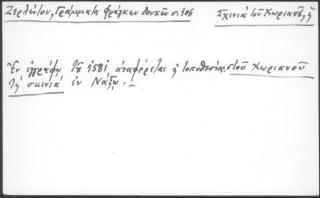 Ζερλέντου, Γράμματα Φράγκων δουκῶν σ. 106 Σχινιὰ τοῦ Χωριανοῦ, ἡ
Ἐν ἐγγράφῳ τοῦ 1581 ἀναφέρεται ἡ τοποθεσία: στοῦ Χωριανοῦ
τὴ σκινιά ἐν Νάξῳ. -